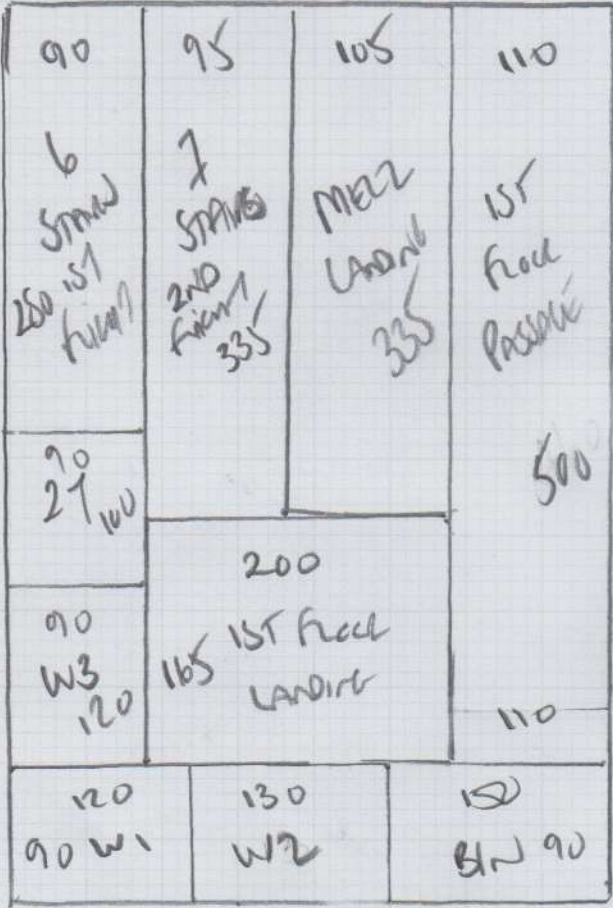 90
6
STAIRS
1ST
280
FLIGHT
95
7
STAIRS
2ND
FLIGHT
335
105
MEZZ
LANDING
335
110
1ST
FLOOR
PASSAGE
500
110
90
27
100
90
W3
120
200
165 1ST FLOOR
LANDING
120
90 W1
130
W2
150
BIN 90